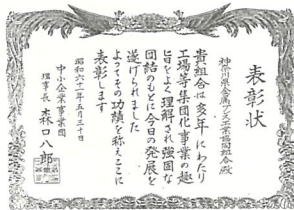 表彰状
神奈川県金属プレス工業協同組合殿
貴組合は多年にわたり
工場等集団化事業の趣
旨をよく理解され強固な
団結のもとに今日の発展を
遂げられました
よってその功績を称えここに
表彰します
昭和六十一年五月三十日
中小企業事業団
理事長 森口八郎